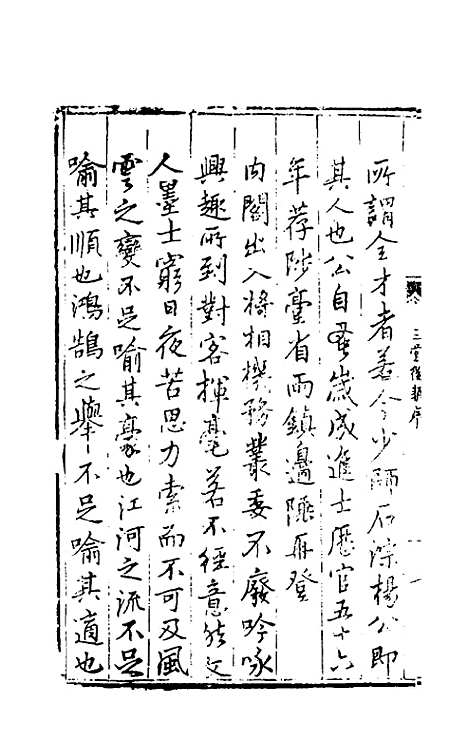 所謂全才者若今少師石淙楊公即
其人也公自蚤歲成進士歷官五十六
年荐陟臺省両鎮邊陲再登
内閣出入將相機務叢委不廢吟咏
興趣所到對客揮毫若不經意然文
人墨士窮日夜苦思力索而不可及風
雲之變不足喻其豪也江河之流不足
喻其順也鴻鵠之舉不足喻其適也
三 後 序
一